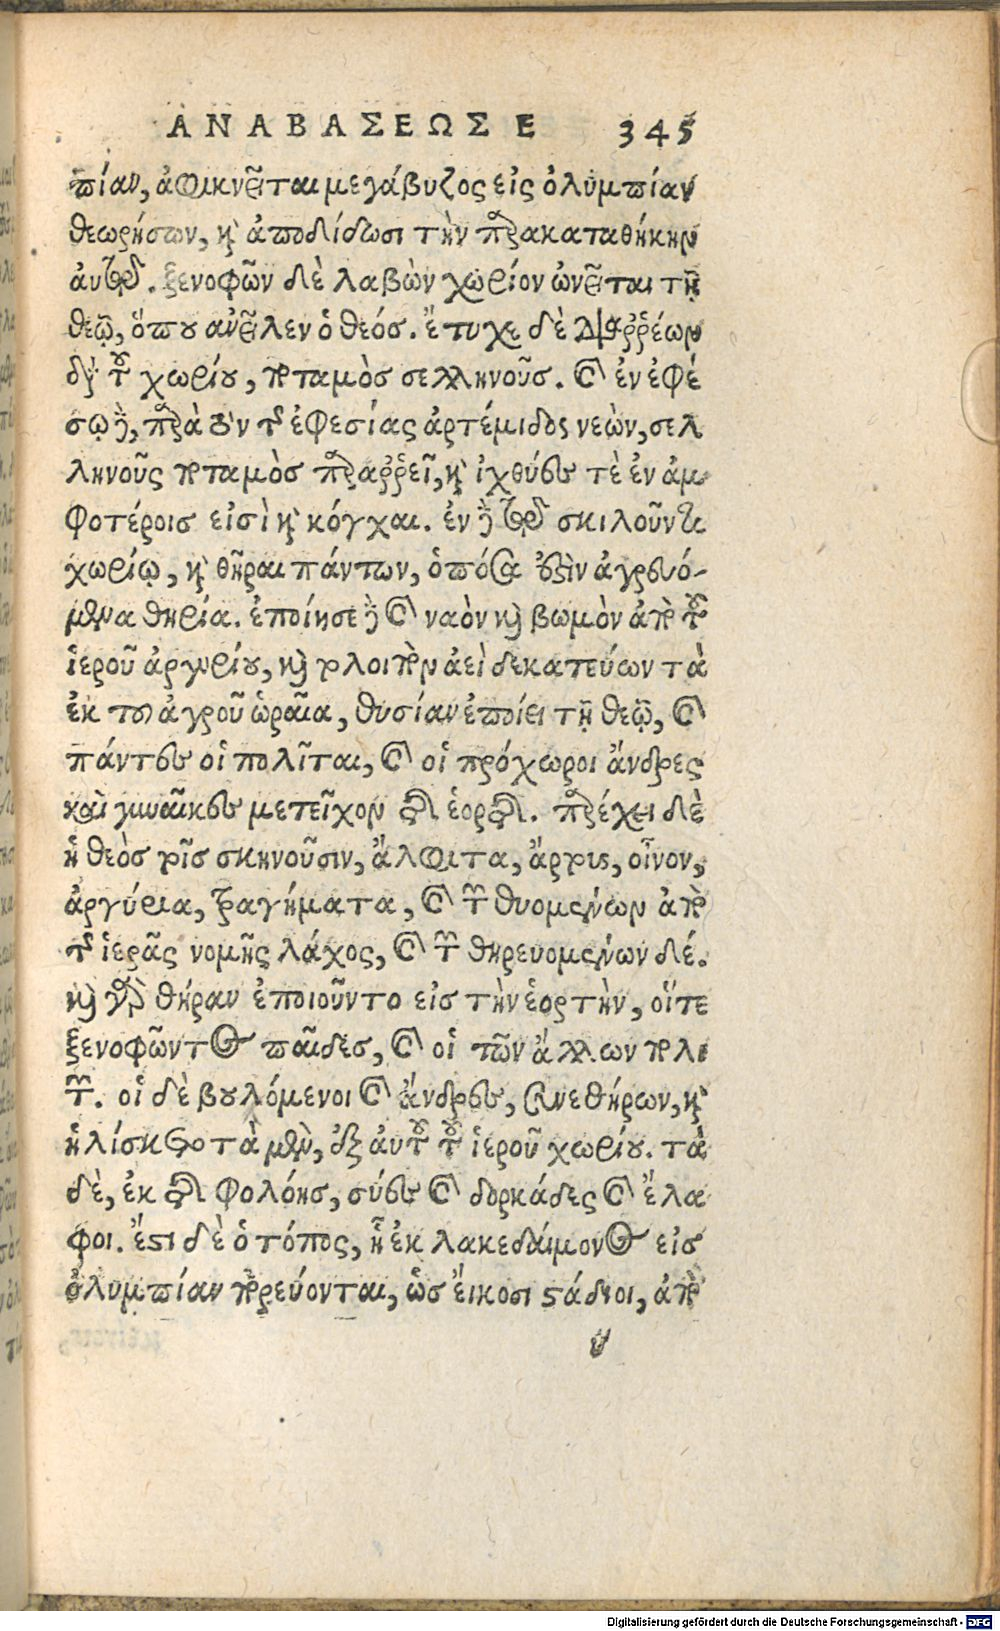 ΑΝΑΒΑΣΕΩΣ Ε 345
πίαν, ἀφικνεῖται μεγάβυζος εἰς ὀλυμπίαν
θεωρήσων, κỳ ἀποδίδωσι τὴν παρακαταθήκην
ἀυτῷ. ξενοφῶν δὲ λαβὼν χωρίον ὠνεῖται τῇ
θεῷ, ὅπου ανεῖλεν ὁ θεός. ἔτυχε δὲ διαῤῥέων
διὰ τοῦ χωρίου, ποταμὸσ σελληνοῦσ. καὶ ἐν ἐφέ
σῳ δὲ, παρὰ τὸν τῆς ἐφεσίας ἀρτέμιδος νεὼν, σελ
ληνοῦς ποταμὸσ παραῤῥεῖ, καὶ ἰχθύες τὲ ἐν ἀμ-
φοτέροισ εἰσὶ καὶ κόγχαι. ἐν δὲ τῷ σκιλοῦντι
χωρίῳ, καὶ θῆραι πάντων, ὁπόσα ἐστὶν ἀγρευό-
μενα θηρία. ἐποίησε δὲ καὶ ναὸν καὶ βωμὸν ἀπὸ τοῦ
ἱεροῦ ἀργυρίου, καὶ τολοιπὸν ἀεὶ δεκατεύων τὰ
ἐκ του ἀγροῦ ὡραῖα, θυσίαν ἐποίει τῇ θεῷ, καὶ
πάντες οἱ πολῖται, καὶ οἱ πρόχωροι ἄνδρες
καὶ γυναῖκες μετεῖχον τῆς ἑορτῆς. παρέχει δὲ
ἡ θεὸσ τοῖς σκηνοῦσιν, ἄλφιτα, ἄρτους, οἶνον,
ἀργύρια, τραγήματα, καὶ τῶν θυομένων ἀπὸ
τῆς ἱερᾶς νομῆς λάχος, καὶ τῶν θηρευομένων δέ.
καὶ γὰρ θήραν ἐποιοῦντο εἰσ τὴν ἑορτὴν, οἵτε
ξενοφῶντος παῖδες, καὶ οἱ τῶν ἄλλων πολι
τῶν. οἱ δὲ βουλόμενοι καὶ ἄνδρες, συνεθήρων, καὶ
ἡλίσκετο τὰ μὲν, ἐξ ἀυτοῦ τοῦ ἱεροῦ χωρίου. τὰ
δὲ, ἐκ τῆς φολόησ, σύες καὶ δορκάδες καὶ ἔλα
φοι. ἔστι δὲ ὁ τόπος, ᾗ ἐκ λακεδαίμονος εἰσ
ὀλυμπίαν πορεύονται, ὡσ ἔικοσι στάδιοι, ἀπὸ
υ
Digitalisierung gefördert durch die Deutsche Forschungsgemeinschaft - DFG